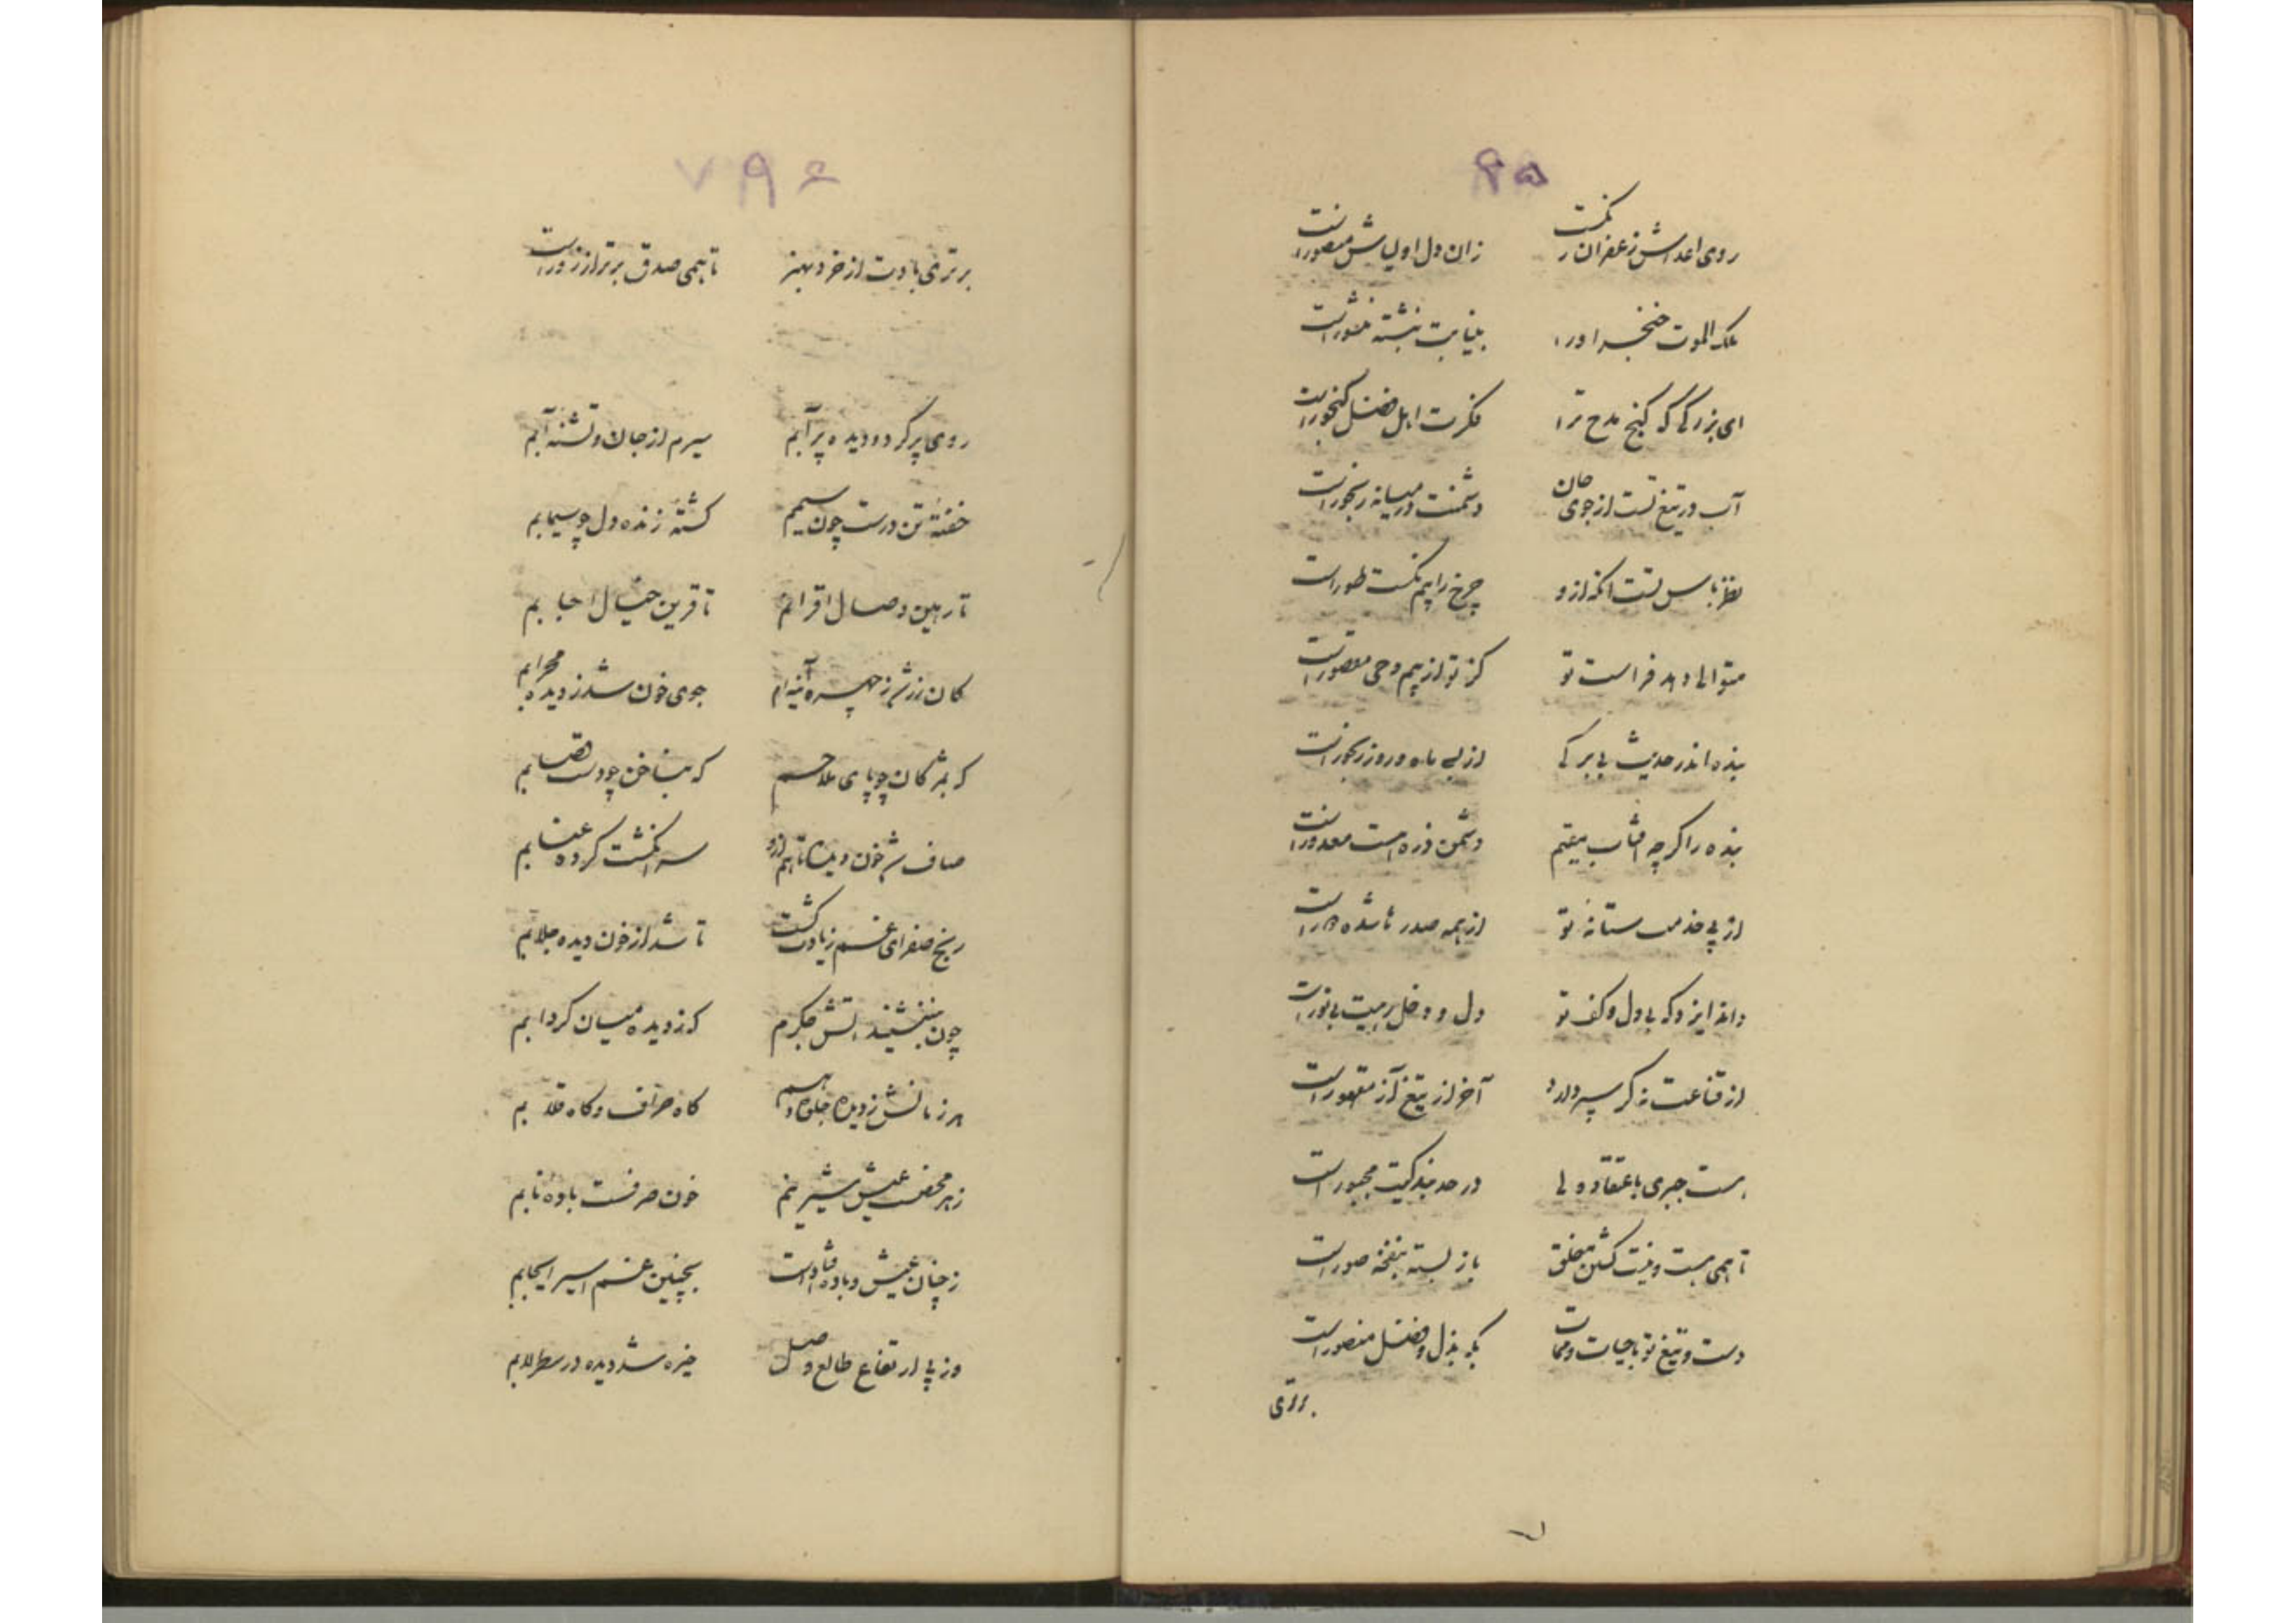 روی اعداش زعفران رنگست زان دل اولیاش منصور است
ملک الموت خنجر او را بنیابت نبشته منشور است
ای بزرگی که گنج مدح ترا فکرت اهل فضل گنجور است
آب در تیغ تست از جوی جان دشمنت در میانه رنجور است
باس تست آنکه ازو چرخ را بیم
متوالی دهد فراست تو کز تو از بیم وحی مقصور است
بنده اندر حدیث بی برگی از پی ماه و روز رنجور است
بنده را گرچه آفتاب دشمن ذره است معدور است
از پی خدمت ستانه تو از همه صدرها شده است
داند ایزد که بی دل و کف تو دل و دخلم بیت بی نور است
از قناعت نه گر سپر دارد آخر از تیغ آز مقهور است
هست جبری باعتقاد ولی در حد بندگیت مجبور است
تا همی هست و نیست گشتن خلق باز بسته بنفخه صور است
دست و تیغ تو با حیات و ممات بگه بذل و فضل منصور است
برتری
برتری بادت از خرد بهنر تا همی صدق برتر از زور است
روی پر گرد و دیده پر آبم سیرم از جان و تشنه آبم
خفته تن درست چون سیمم کشته زنده دل چو سیمابم
تا رهین وصال اقرانم تا قرین خیال احبابم
کان زر شد ز چهره آینه‌ام جوی خون شد ز دیده محرابم
که بمژگان چو پای ملاحم که بناخن چو دست قصابم
صاف شد خون دیده تا هم ازو سر انگشت کرده عنابم
رنج صفرای غم زیادت گشت تا شد از خون دیده جلابم
چون نشیند آتش جگرم که ز دیده میان گردابم
هر زمانش ز دیده جلوه دهم گاه صراف و گاه قلابم
زهر محضست عیش شیرینم خون صرفست باده نابم
ز چنان عیش و باده شادانست بچنین غم اسیر ایجابم
وز پی ارتفاع طالع وصل خیره شد دیده در سطرلابم